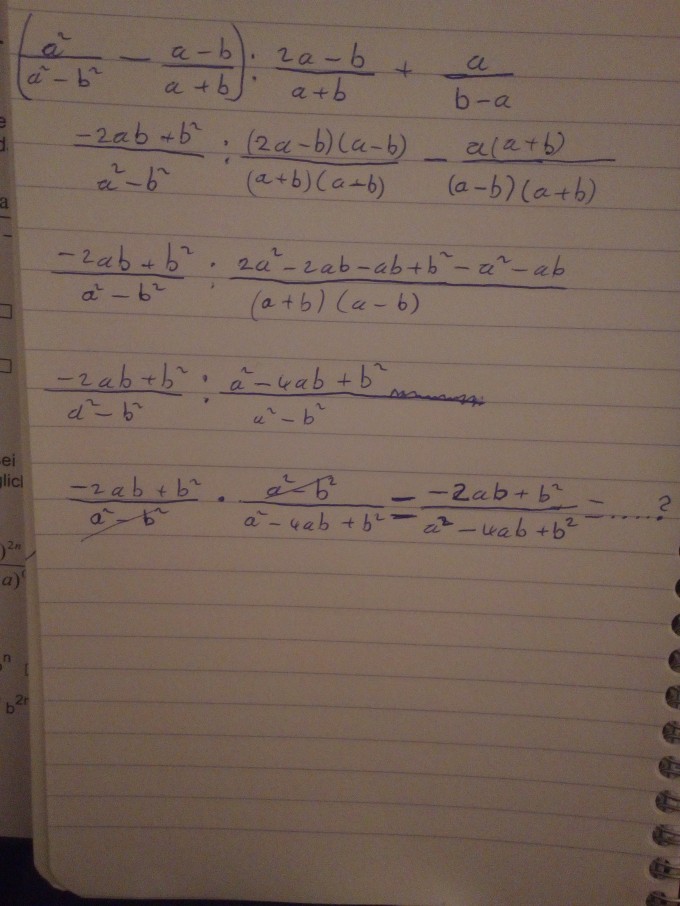 (a²/(a² - b²) - (a-b)/(a+b)) : (2a-b)/(a+b) + a/(b-a)
(-2ab+b²)/(a²-b²) : ((2a-b)(a-b))/((a+b)(a-b)) - (a(a+b))/((a-b)(a+b))
(-2ab+b²)/(a²-b²) : (2a²-2ab-ab+b²-a²-ab)/((a+b)(a-b))
(-2ab+b²)/(a²-b²) : (a²-4ab+b²)/(a²-b²)
(-2ab+b²)/(a²-b²) · (a²-b²)/(a²-4ab+b²) = (-2ab+b²)/(a²-4ab+b²) = .....?
e
d
a
sei
glich
)²ⁿ
a)
n
b²ⁿ